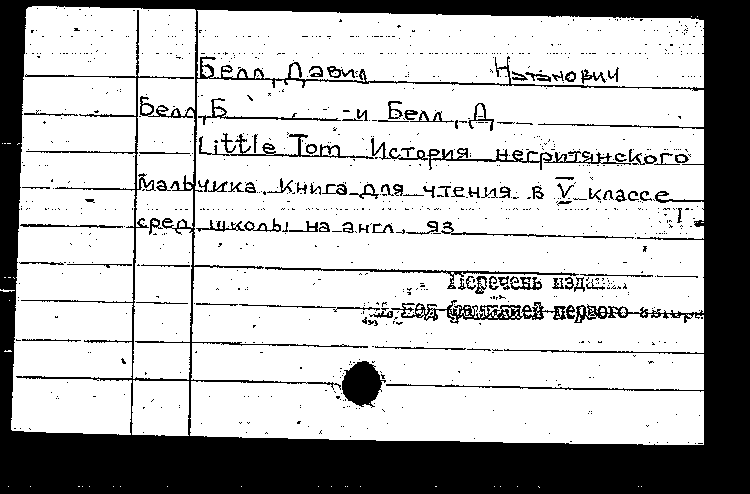 Белл, Давид Натанович
Белл, Б. и Белл, Д.
Little Tom. История негритянского
мальчика. Книга для чтения в V классе
сред. школы на англ. яз.
Перечень издан
под фамилией первого автора